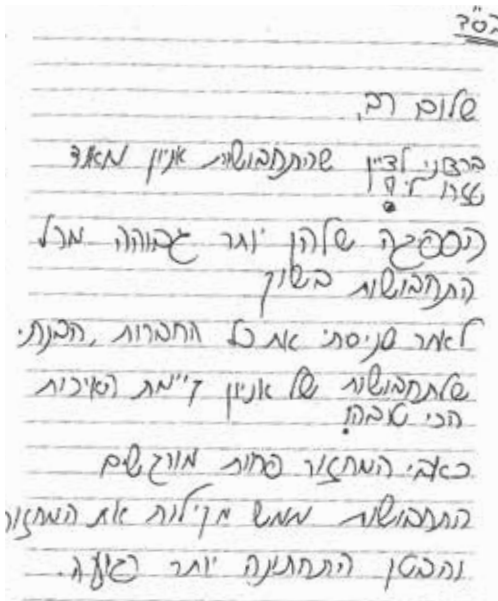 בס"ד
שלום רב,
ברצוני לציין שהתחבושות אניון מאוד
עזרו לי!
הספיגה שלהן יותר גבוהה מכל
התחבושות בשוק
לאחר שניסתי את כל החברות, הבנתי
שלתחבושות של אניון קיימת האיכות
הכי טובה!
כאבי המחזור פחות מורגשים
התחבושות ממש מקילות את המחזור
והבטן התחתונה יותר רגועה.